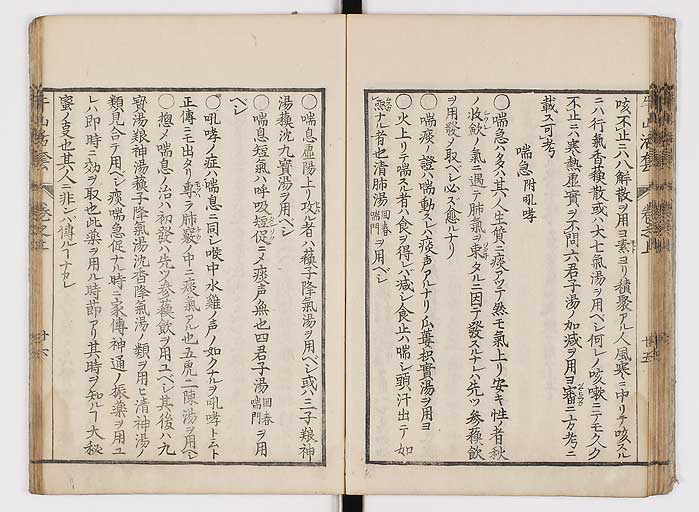 咳不止ニハ八解散ヲ用ヨ素ヨリ積聚アル人風寒ニ中リテ咳スル
ニハ行氣香蘓散或ハ大七氣湯ヲ用ベシ何レノ咳嗽ニテモ久ク
不止ニハ寒熱虚實ヲ不問六君子湯ノ加減ヲ用ヨ審ニ方考ニ
載ス可考
喘急附吼哮
〇喘急ハ多ハ其人生質ニ痰アツテ然モ氣上リ安キ性ノ者秋
ノ收飲ノ氣ニ遇テ肺氣ヲ束タルニ因テ發スルナレハ先ツ参蘓飲
ヲ用發ノ取ベシ必ス愈ルナリ
〇喘痰ノ證ハ喘動スレハ痰声アルナリ瓜蔞枳實湯ヲ用ヨ
〇火上リテ喘スル者ハ食ヲ得レバ減シ食止ハ喘シ頭汗出テ如
蒸ナル者也清肺湯回春喘門ヲ用ベシ
〇喘息虚陽上リ攻ル者ハ蘓子降氣湯ヲ用ベシ或ハ三子粮神
湯蘓沈九寳湯ヲ用ベシ
〇喘息短氣ハ呼吸短促ニメ痰声無也四君子湯回春喘門ヲ用
ベシ
〇吼哮ノ症ハ喘息ニ同シ喉中水雞ノ声ノ如クナルヲ吼哮トムト
正傳ニモ出タリ專ラ肺竅ノ中ニ痰氣アル也五虎二陳湯ヲ用ベシ
〇揔メ喘息ノ治ハ初發ハ先ツ参蘓飲ヲ用ユベシ其後ハ九
寳湯粮神湯蘓子降氣湯沈香降氣湯ノ類ヲ用ヒ清神湯ノ
類見合テ用ベシ痰喘急促ナル時ニ家傳神通ノ振藥ヲ用ユ
レハ即時ニ効ヲ取也此藥ヲ用ル時節アリ其時ヲ知ルフ大秘
蜜ノ叓也其人ニ非ンバ傳ルフナカレ
牛山活套
卷之上
廿五
廿六